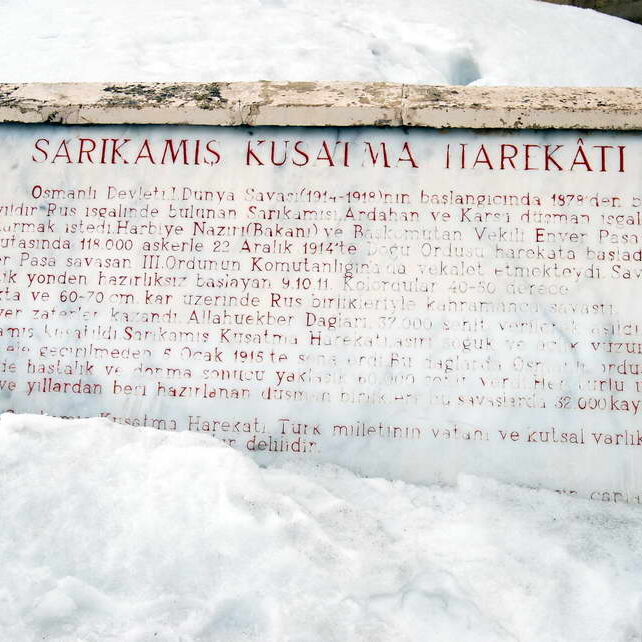 SARIKAMIŞ KUŞATMA HAREKÂTI
Osmanlı Devleti.I.Dünya Savaşı(1914-1918)'nın başlangıcında 1878'den b
yıldır Rus işgalinde bulunan Sarıkamış.Ardahan ve Kars'ı düşman işgal
urmak istedi.Harbiye Nazırı(Bakanı) ve Başkomutan Vekili Enver Paşa
118.000 askerle 22 Aralık 1914'te Doğu Ordusu harekata başlad
er Paşa savaşan III.Ordunun Komutanlığına da vekalet etmekteydi.
ik yönden hazırlıksız başlayan 9.10.11. Kolordular 40-50 derece
kta ve 60-70 cm. kar üzerinde Rus birlikleriyle kahramanca savaştı.
zaferler kazandı. Allahuekber Dağları. 32.000 şehit verilerek aşıldı
amış kuşatıldı.Sarıkamış Kuşatma Harekatı.aşırı soğuk ve açlık yüzün
ele geçirilmeden 5 Ocak 1915'te sona erdi.Bu dağlarda
hastalık ve donma sonucu yaklaşık verdi.Her türlü
ve yıllardan beri hazırlanan düşman birlikleri bu savaşlarda 32.000 kay
Kuşatma Harekatı. Türk milletinin vatanı ve kutsal varlık
delilidir.